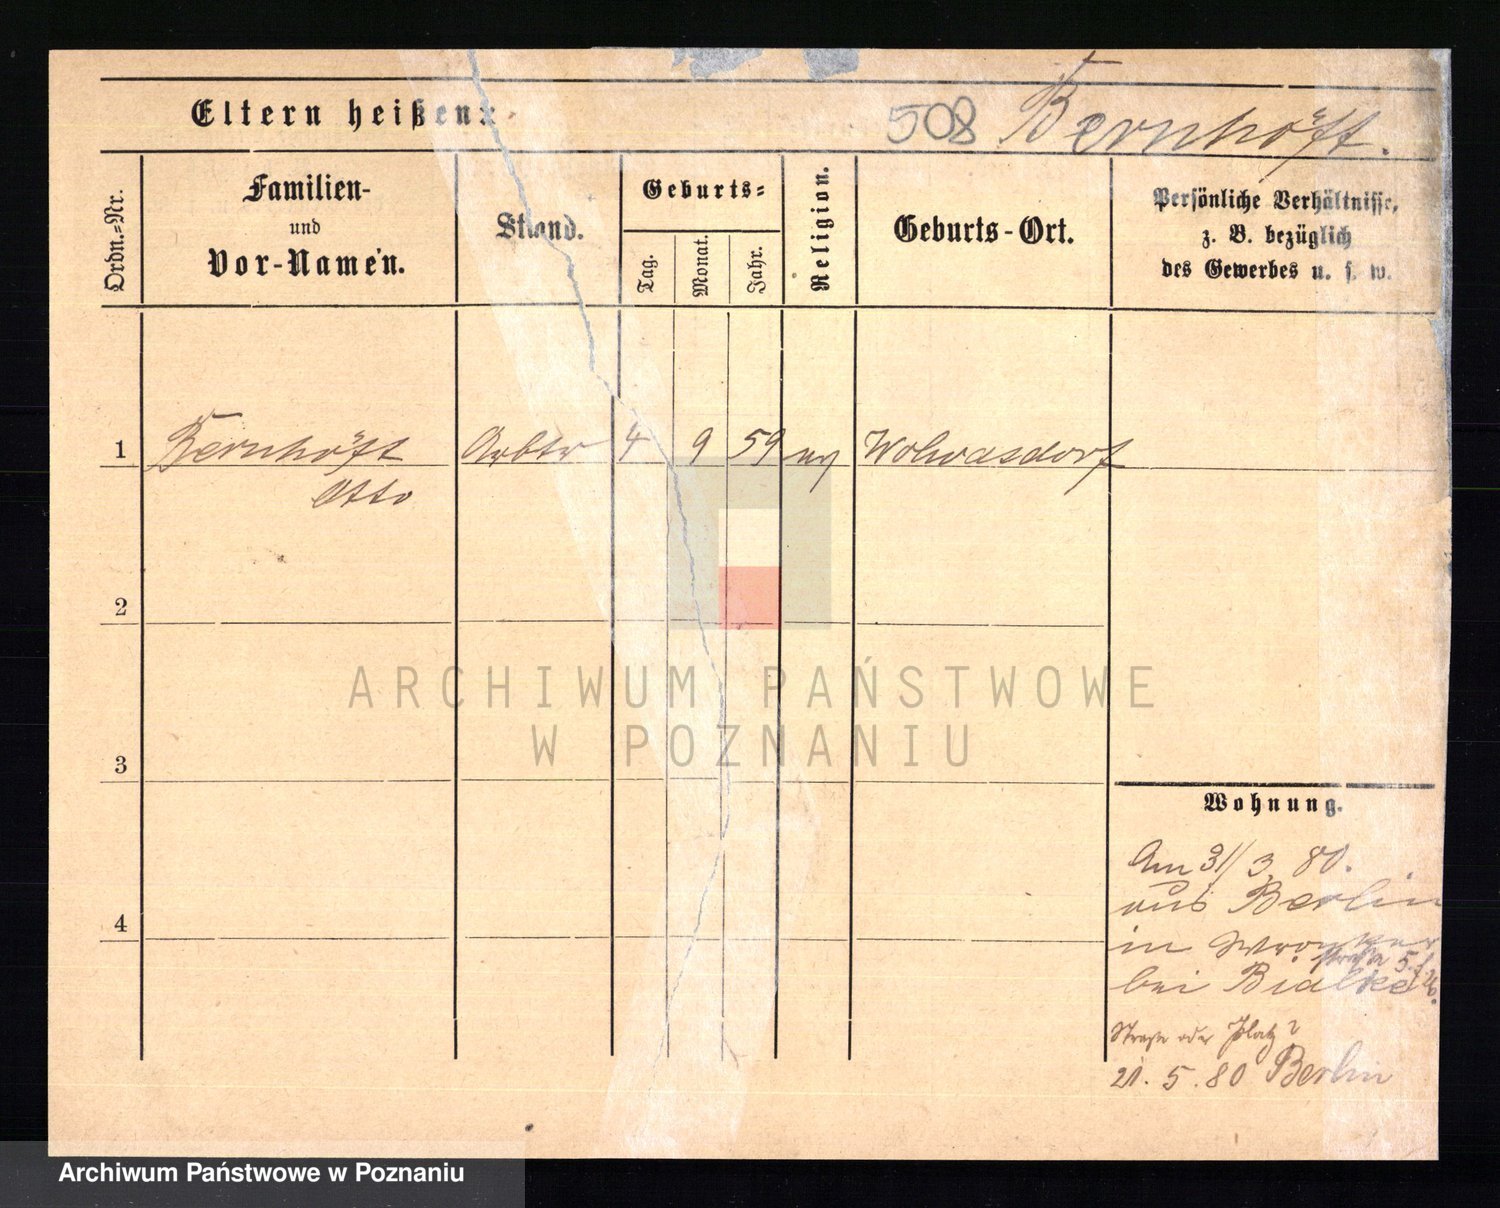 Eltern heißen:
508 Bernhöft.
Ordn.=Nr.
Familien-
und
Vor-Namen.
Stand.
Geburts=
Tag.
Monat.
Jahr.
Religion.
Geburts-Ort.
Persönliche Verhältnisse,
z. B. bezüglich
des Gewerbes u. s. w.
1 Bernhöft Arbtr 4 9 59 ev Wolwasdorf
Otto
2
3
4
ARCHIWUM PAŃSTWOWE
W POZNANIU
Wohnung.
Am 31/3. 80.
aus Berlin
in Wronker
straße 5.
bei Bialke
Straße oder Platz?
21. 5. 80 Berlin
Archiwum Państwowe w Poznaniu